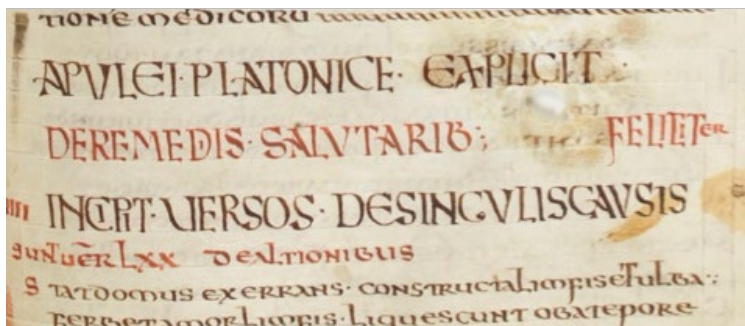 TIONE MEDICORU
APULEI·PLATONICE· EXPLICIT·
DEREMEDIS·SALVTARIB; FELICITER
IIII INCIPIT·VERSOS·DESINGVLISCAVSIS
SUNT UER LXX DEALTIONIBUS
STATDOMUS EXERRANS·CONSTRUCTALIMFISETULBA:
FERBETAMORLIMFIS·LIQUESCUNT OBATEPORE